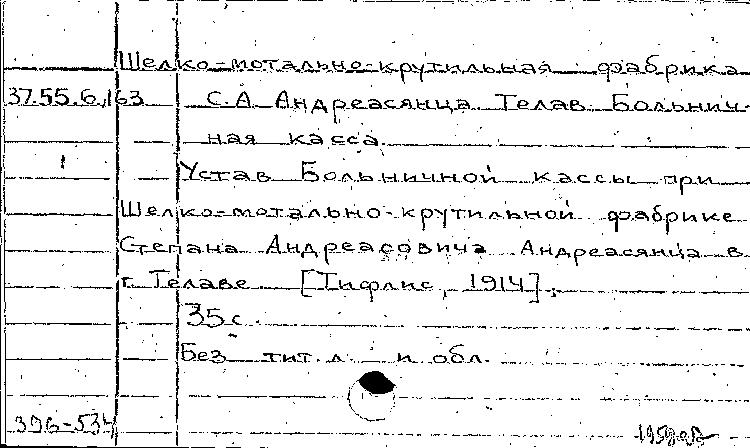 Шелко-мотально-крутильная фабрика
37.55.6.163 С.А. Андреасянца. Телав. Больнич-
ная касса.
1 Устав Больничной кассы при
Шелко-мотально-крутильной фабрике
Степана Андреасовича Андреасянца в
г. Телаве. [Тифлис, 1914].
35 с.
Без тит. л. и обл.
396-534